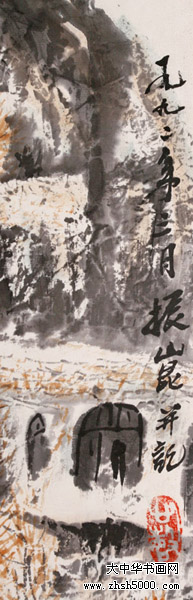 一九九二年三月振崑并記
大中华书画网
www.zhsh5000.com